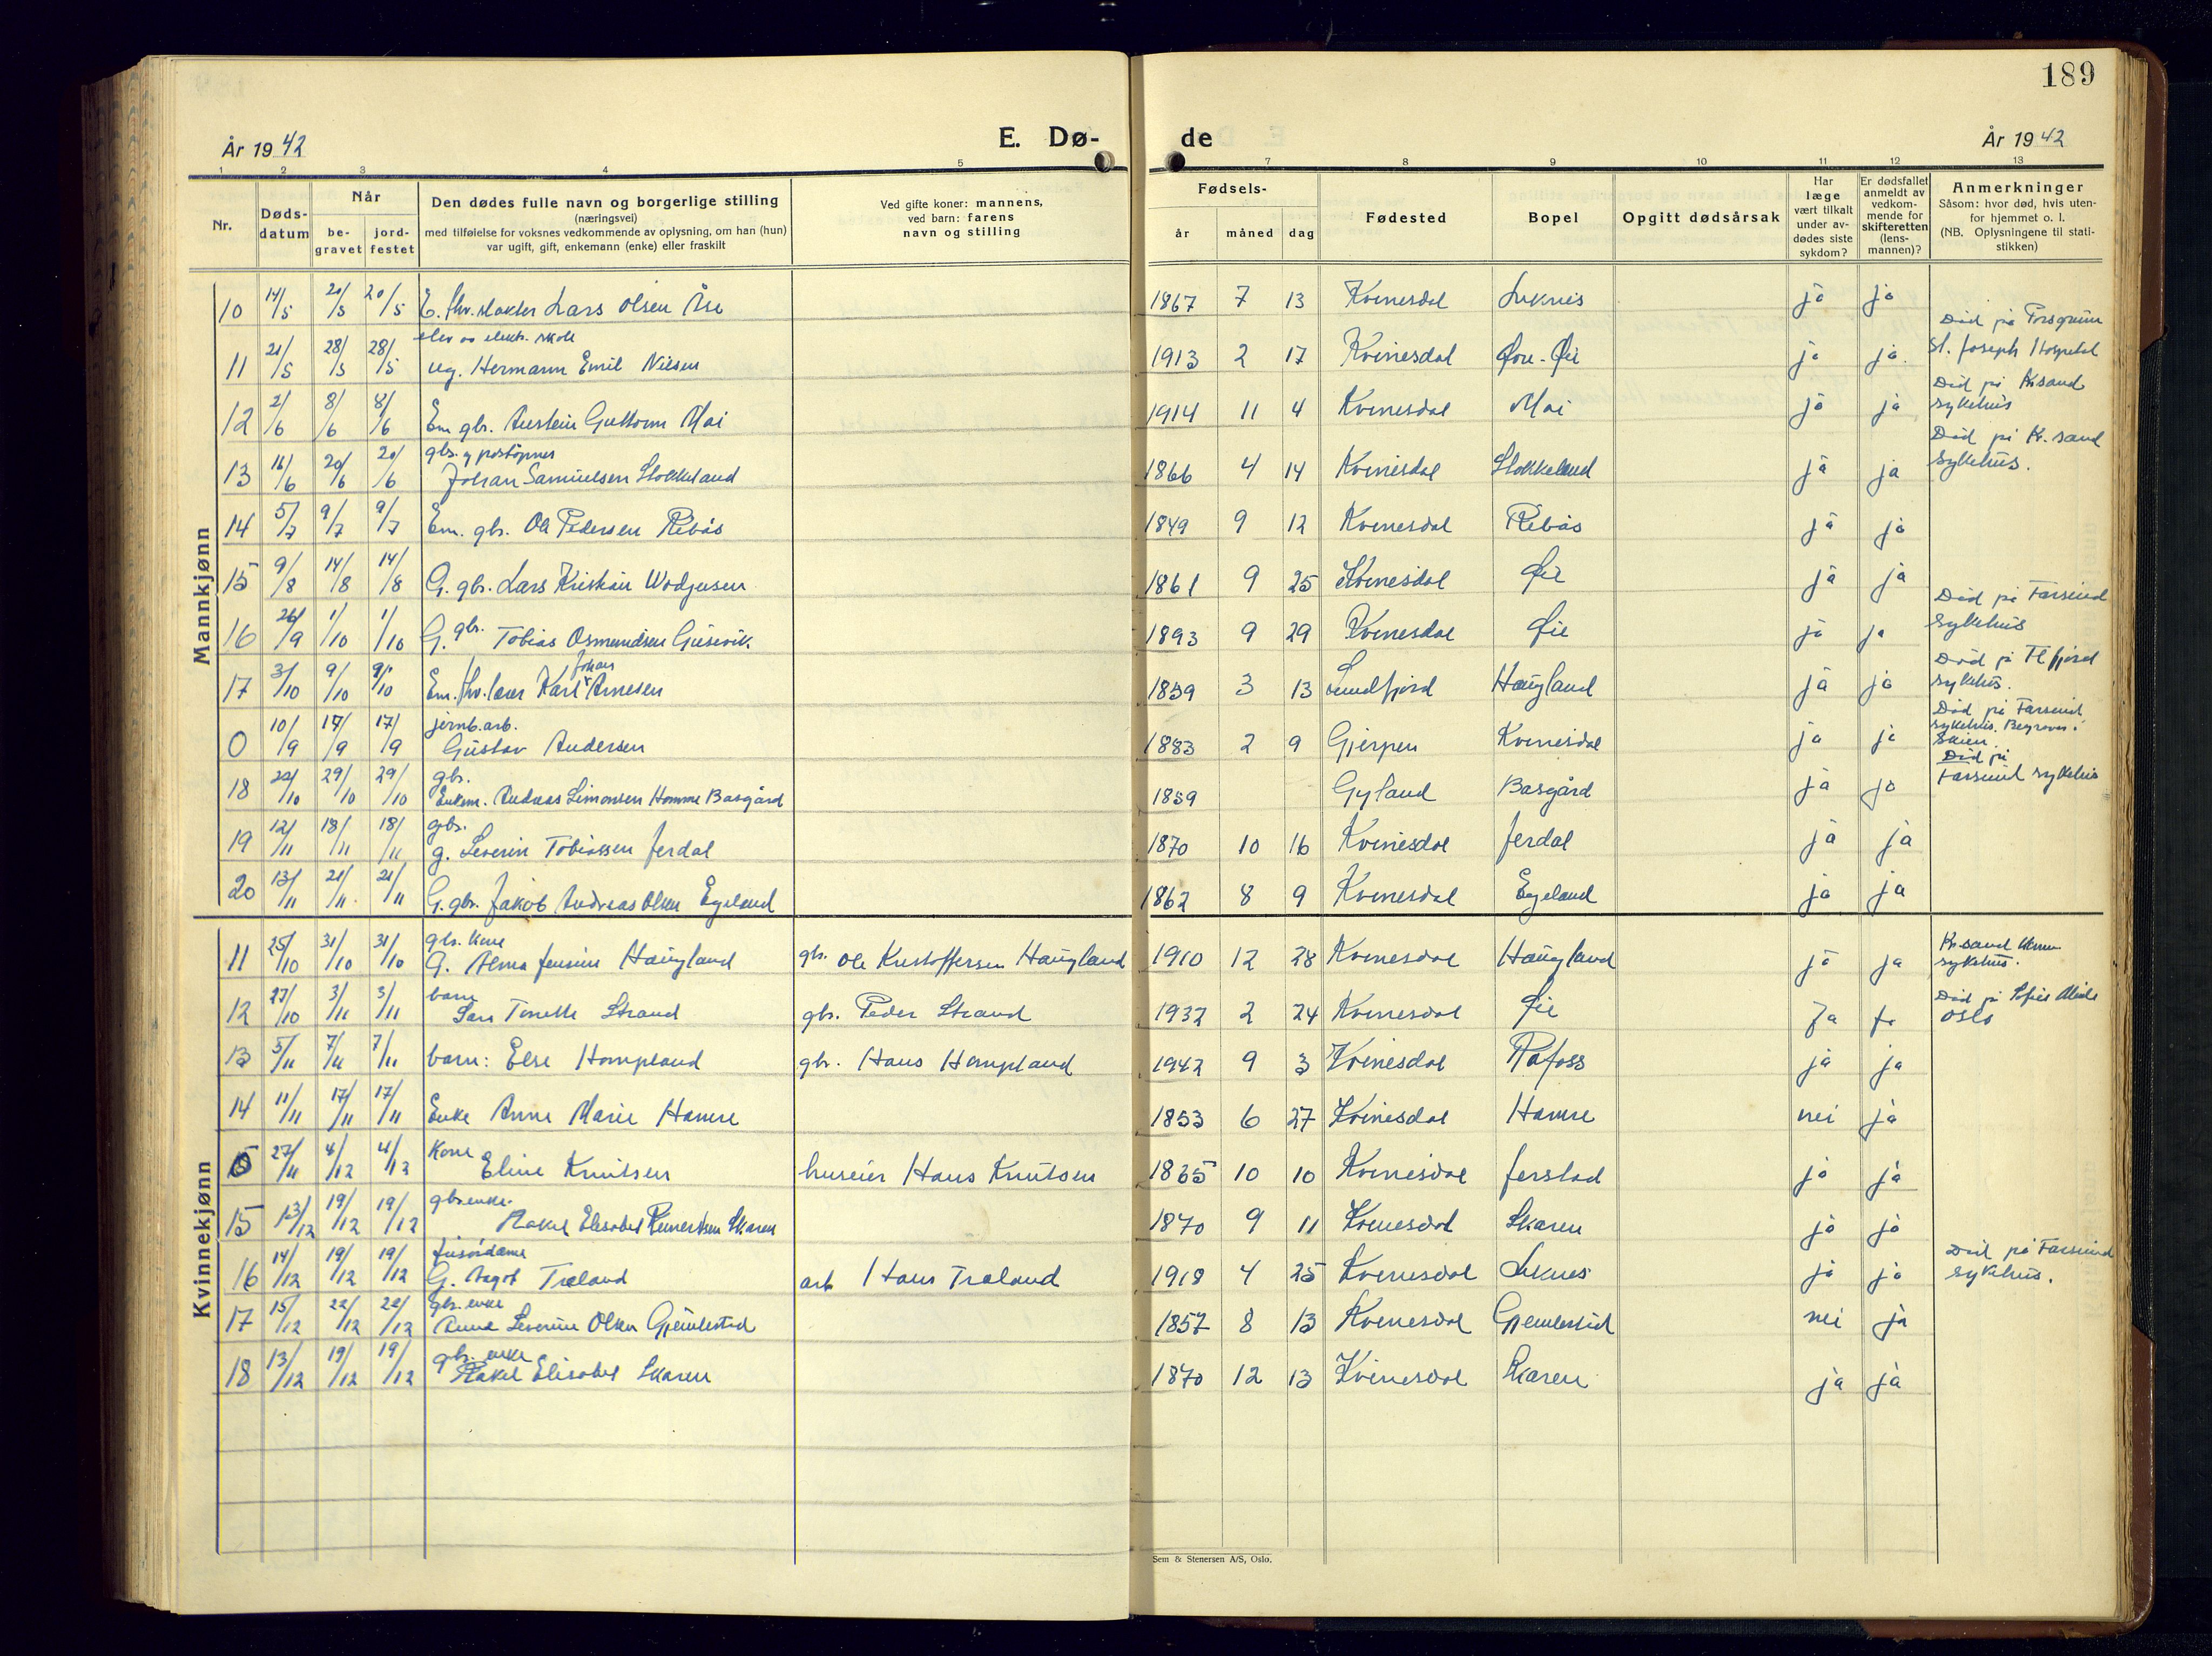 189
År 1942
E. Dø-
de
År 1942
1 2 3 4 5 7 8 9 10 11 12 13
Nr.
Døds-
datum
Når
be-
gravet
jord-
festet
Den dødes fulle navn og borgerlige stilling
(næringsvei)
med tilføielse for voksnes vedkommende av oplysning, om han (hun)
var ugift, gift, enkemann (enke) eller fraskilt
Ved gifte koner: mannens,
ved barn: farens
navn og stilling
Fødsels-
år måned dag
Fødested
Bopel
Opgitt dødsårsak
Har
læge
vært tilkalt
under av-
dødes siste
sykdom?
Er dødsfallet
anmeldt av
vedkom-
mende for
skifteretten
(lens-
mannen)?
Anmerkninger
Såsom: hvor død, hvis uten-
for hjemmet o. l.
(NB. Oplysningene til stati-
stikken)
Mannkjønn
10 14/5 20/5 20/5 E. fhv. Lars Olsen Åse 1867 7 13 Kvinesdal Liknes ja ja
elev av elektr. skole
11 21/5 28/5 28/5 ug. Hermann Emil Nilsen 1913 2 17 Kvinesdal Øvre-Øie ja ja
Død på Porsgrunn
St. Joseph Hospital
12 2/6 8/6 8/6 Em gbr. Austein Guttorm Moi 1914 11 4 Kvinesdal Moi ja ja
Død på Kr.sand
sykehus
gbr. og poståpner
13 16/6 20/6 20/6 Johan Samuelsen Stokkeland 1866 4 14 Kvinesdal Stokkeland ja ja
Død på Kr.sand
sykehus.
14 5/7 9/7 9/7 Em. gbr. Ole Pedersen Rebås 1849 9 12 Kvinesdal Rebås ja ja
15 9/8 14/8 14/8 G. gbr. Lars Kristian Wodjesen 1861 9 25 Kvinesdal Øie ja ja
16 26/9 1/10 1/10 G. gbr. Tobias Osmundsen Gusevik. 1893 9 29 Kvinesdal Øie ja ja
Død på Farsund
sykehus
17 3/10 9/10 9/10 Em. fhv. lærer Karl Johan Arnesen 1859 3 13 Sundfjord Haugland ja ja
Død på Fl.fjord
sykehus.
jernb.arb.
0 10/9 17/9 17/9 Gustav Andersen 1883 2 9 Gjerpen Kvinesdal ja ja
Død på Farsund
sykehus. Begraves i
Skien.
gbr.
18 22/10 29/10 29/10 Enkem. Andreas Simonsen Homme Basgård 1859 Gyland Basgård ja ja
Død på
Farsund sykehus
gbr.
19 12/11 18/11 18/11 g. Severin Tobiassen Jerdal 1870 10 16 Kvinesdal Jerdal ja ja
20 13/11 21/11 21/11 G. gbr. Jakob Andreas Olsen Egeland 1862 8 9 Kvinesdal Egeland ja ja
Kvinnekjønn
gbr. kone
11 25/10 31/10 31/10 G. Alma Jensine Haugland gbr. Ole Kristoffersen Haugland 1910 12 28 Kvinesdal Haugland ja ja
Kr.sand
sykehus.
barn
12 27/10 3/11 3/11 Sara Tonette Strand gbr. Peder Strand 1932 2 24 Kvinesdal Øie Ja ja
Død på
Oslo
13 5/11 7/11 7/11 barn: Else Hompland gbr. Hans Hompland 1942 9 3 Kvinesdal Rafoss ja ja
14 11/11 17/11 17/11 Enke Anne Marie Hamre 1853 6 27 Kvinesdal Hamre nei ja
kone
0 27/11 4/12 4/12 Eline Knutsen huseier Hans Knutsen 1865 10 10 Kvinesdal Jerstad ja ja
gbr.enke.
15 13/12 19/12 19/12 Rakel Elisabet Reinertsen Skaren 1870 9 11 Kvinesdal Skaren ja ja
frisørdame
16 14/12 19/12 19/12 G. Aagot Træland arb Hans Træland 1918 4 25 Kvinesdal Liknes ja ja
Død på Farsund
sykehus.
gbr. enke
17 15/12 22/12 22/12 Anna Severine Olsen Gjemlestad 1857 8 13 Kvinesdal Gjemlestad nei ja
gbr. enke
18 13/12 19/12 19/12 Rakel Elisabet Skaren 1870 12 13 Kvinesdal Skaren ja ja
Sem & Stenersen A/S, Oslo.